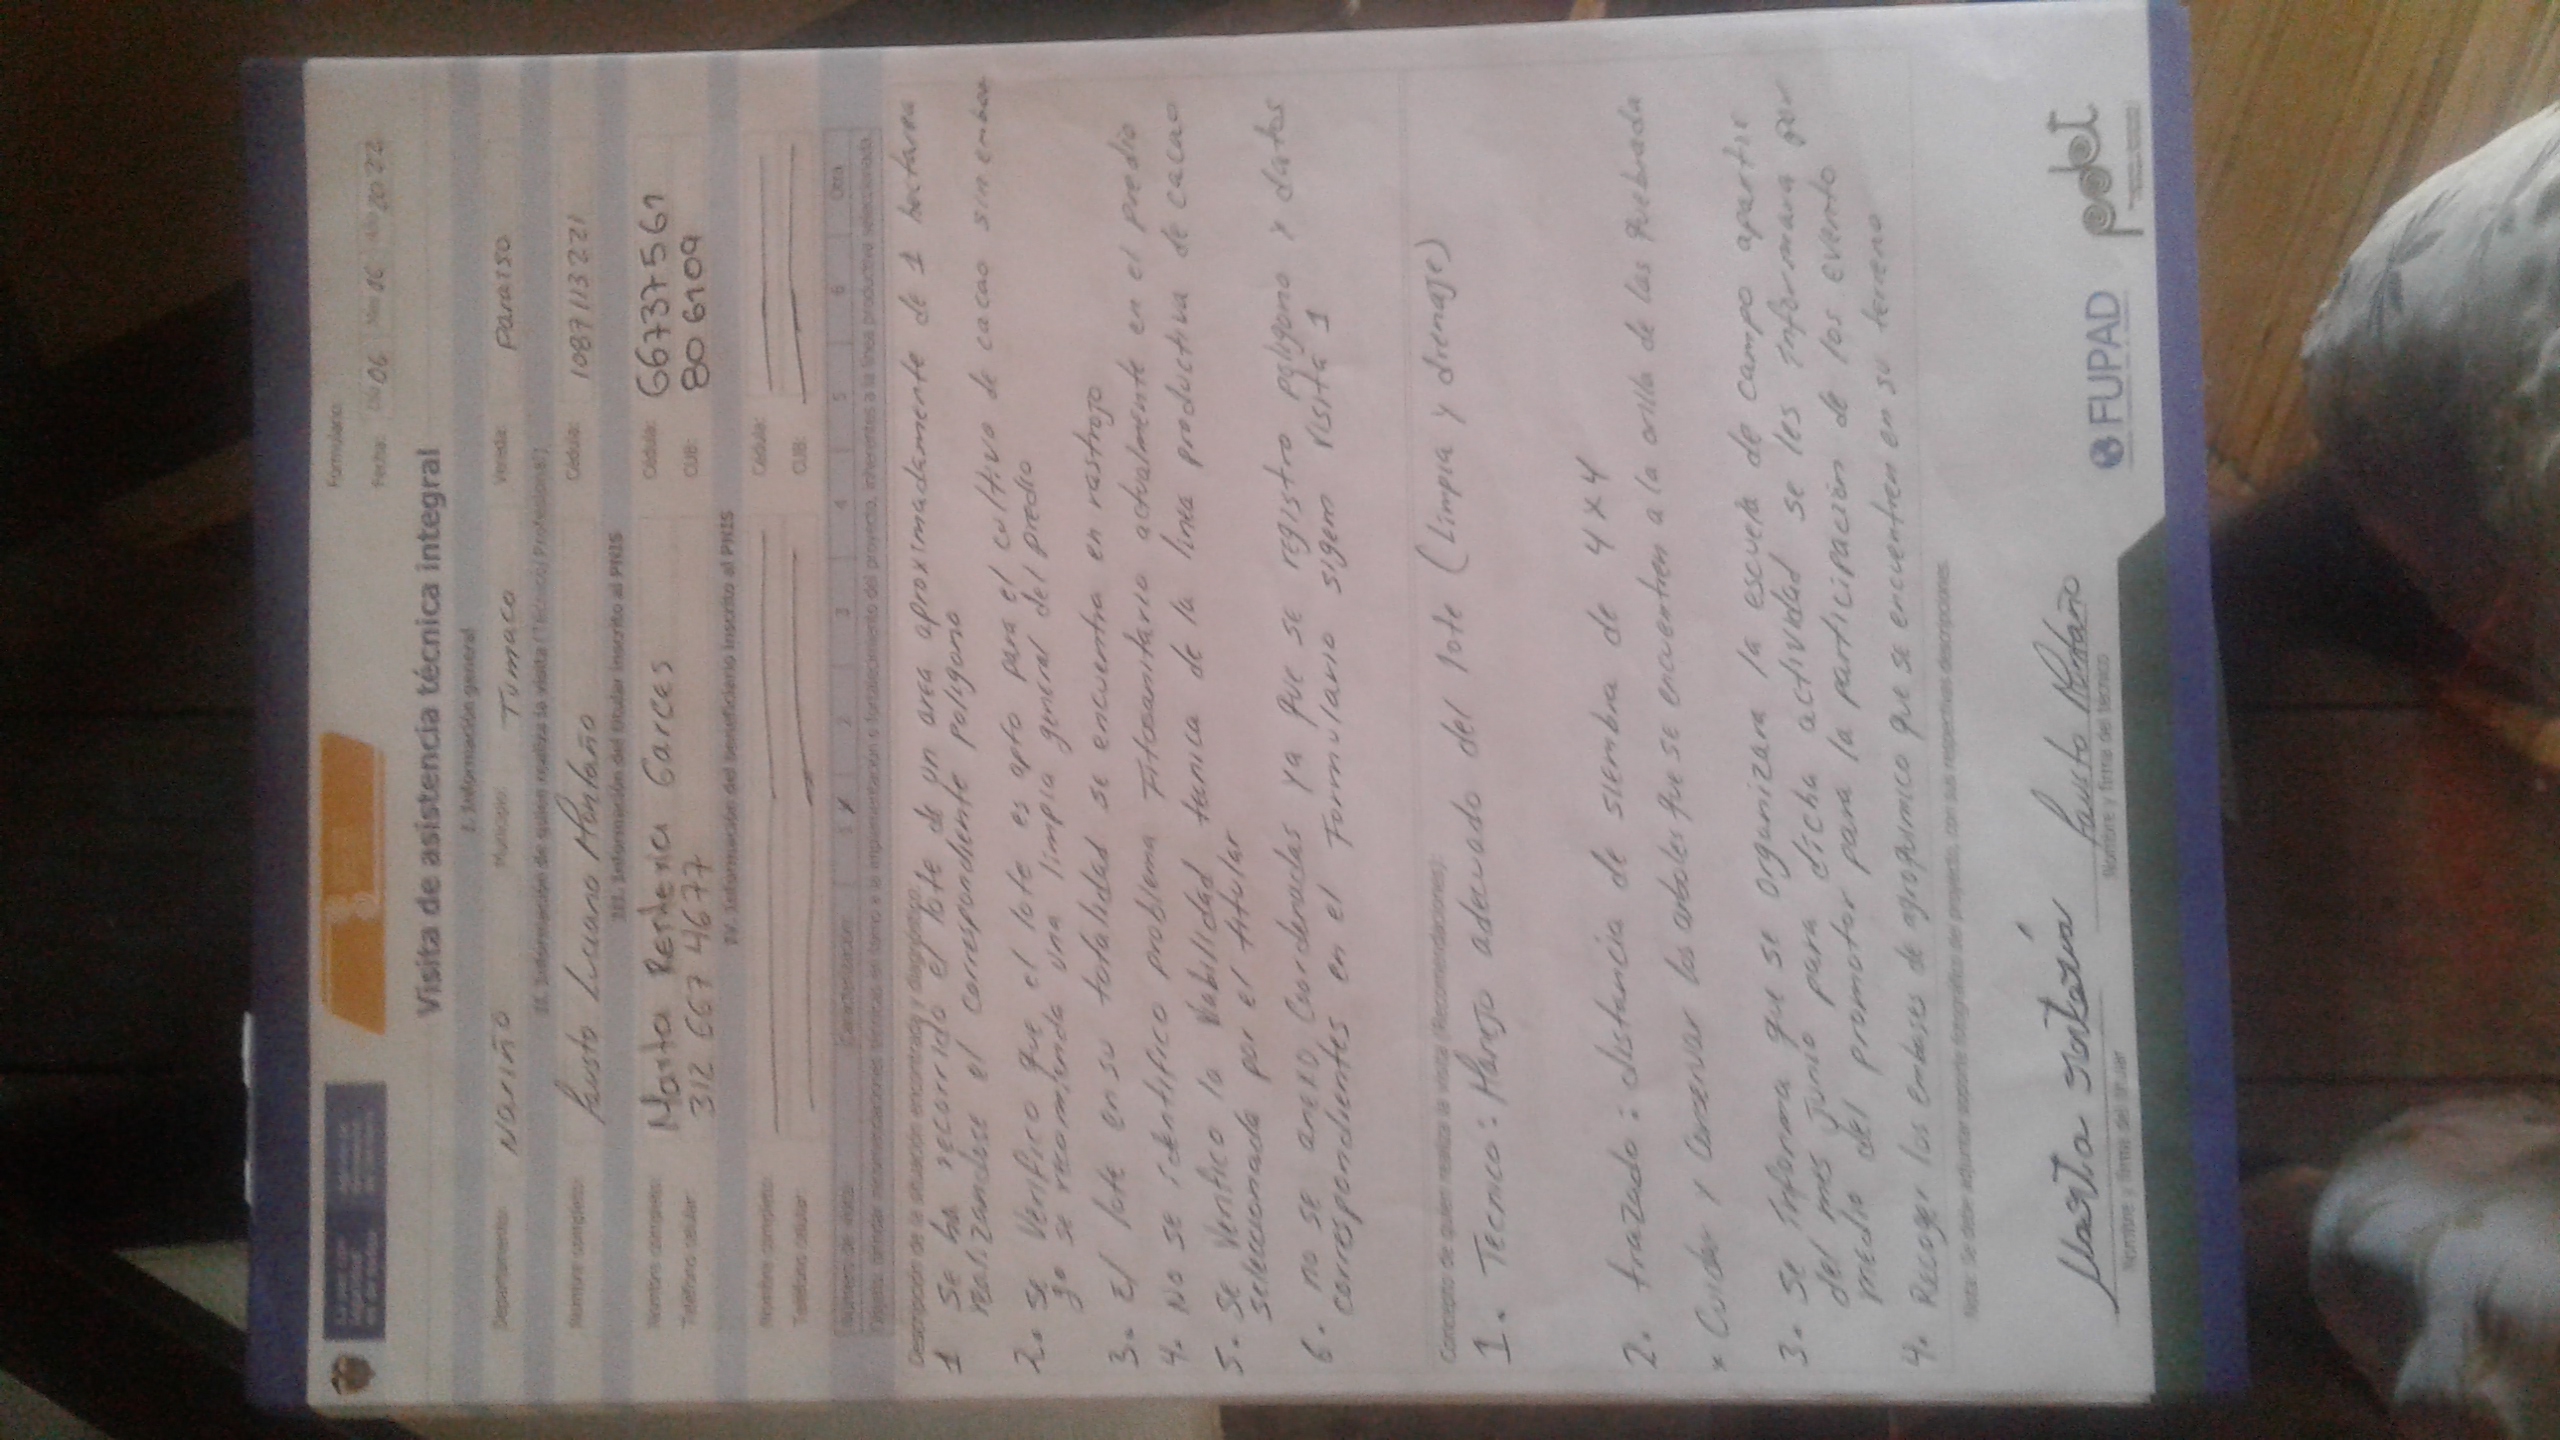 Formulario:
Fecha: Día 06 Mes 06 Año 2022
Visita de asistencia técnica integral
I. Información general
Departamento: Nariño Municipio: Tumaco Vereda: Paraiso
II. Información de quien realiza la visita (Técnico/Profesional)
Nombre completo: Fausto Luciano Montaño Cédula: 1087113221
III. Información del titular inscrito al PNIS
Nombre completo: Marta Renteria Garces Cédula: 667375561
Teléfono celular: 312 667 4677 CUB: 806109
IV. Información del beneficiario inscrito al PNIS
Nombre completo: Cédula:
Teléfono celular: CUB:
Número de visita: Caracterización: 1 X 2 3 4 5 6 Otra
brindar recomendaciones técnicas, en torno a la implementación o fortalecimiento del proyecto, inherentes a la línea productiva seleccionada.
Descripción de la situación encontrada y diagnóstico
1 Se ha recorrido el lote de un area aproximadamente de 1 hectarea
realizandose el correspondiente poligono
2. se Verifico que el lote es apto para el cultivo de cacao sin embar
go se recomienda una limpia general del predio
3. El lote en su totalidad se encuentra en rastrojo
4. No se identifico problema Fitosanitario actualmente en el predio
5. Se Verifico la Vabilidad tecnica de la linea productiva de cacao
seleccionada por el titular
6. no se anexo Coordenadas ya que se registro poligono y datos
correspondientes en el Formulario sigeno Visita 1
Concepto de quien realiza la visita (Recomendaciones):
1. Tecnico: Manejo adecuado del lote (Limpia y drenaje)
2. trazado: distancia de siembra de 4x4
* Cuidar y Conservar los arboles que se encuentren a la orilla de las quebrada
3. Se informa que se organizara la escuela de campo apartir
del mes junio para dicha actividad se les informara por
medio del promotor para la participación de los evento
4. Recoger los embases de agroquimico que se encuentren en su terreno
Nota: Se debe adjuntar soporte fotográfico del proyecto, con sus respectivas descripciones.
Fausto Montaño
Nombre y firma del titular
Nombre y firma del técnico
FUPAD
pdet